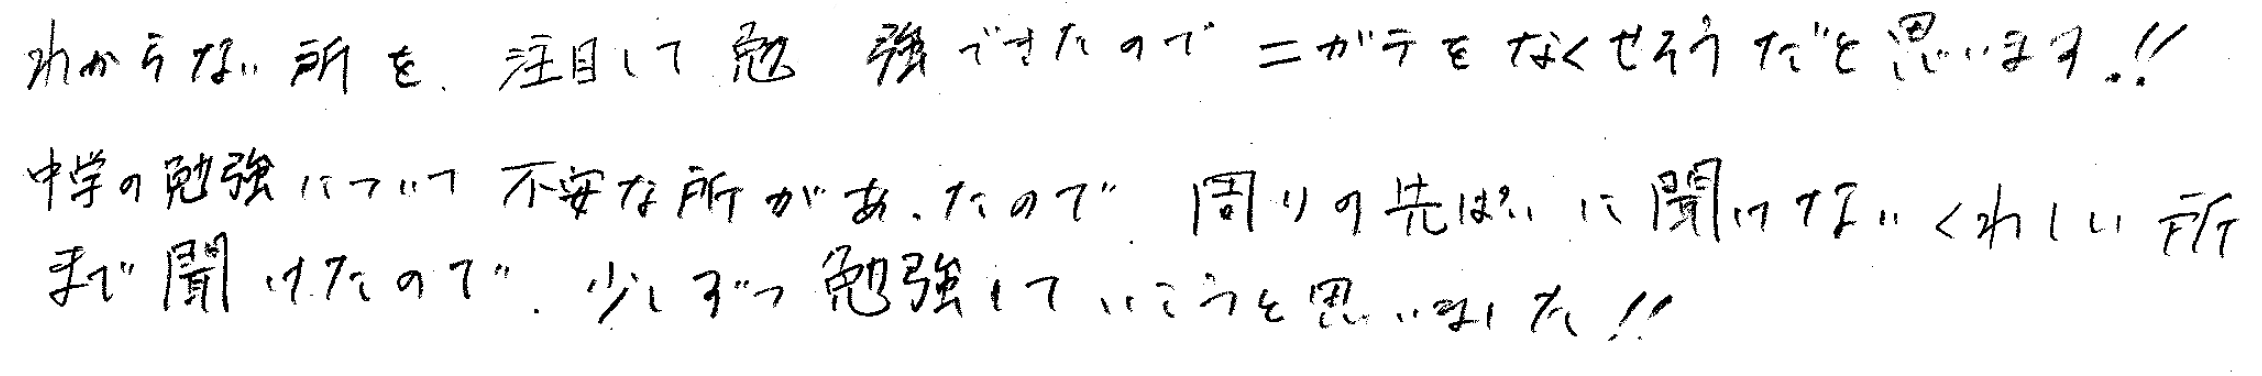 わからない所を、注目して勉強できたのでニガテをなくせそうだと思います!!
中学の勉強について不安な所があったので、周りの先ぱいに聞けないくわしい所
まで聞けたので、少しずつ勉強していこうと思いました!!